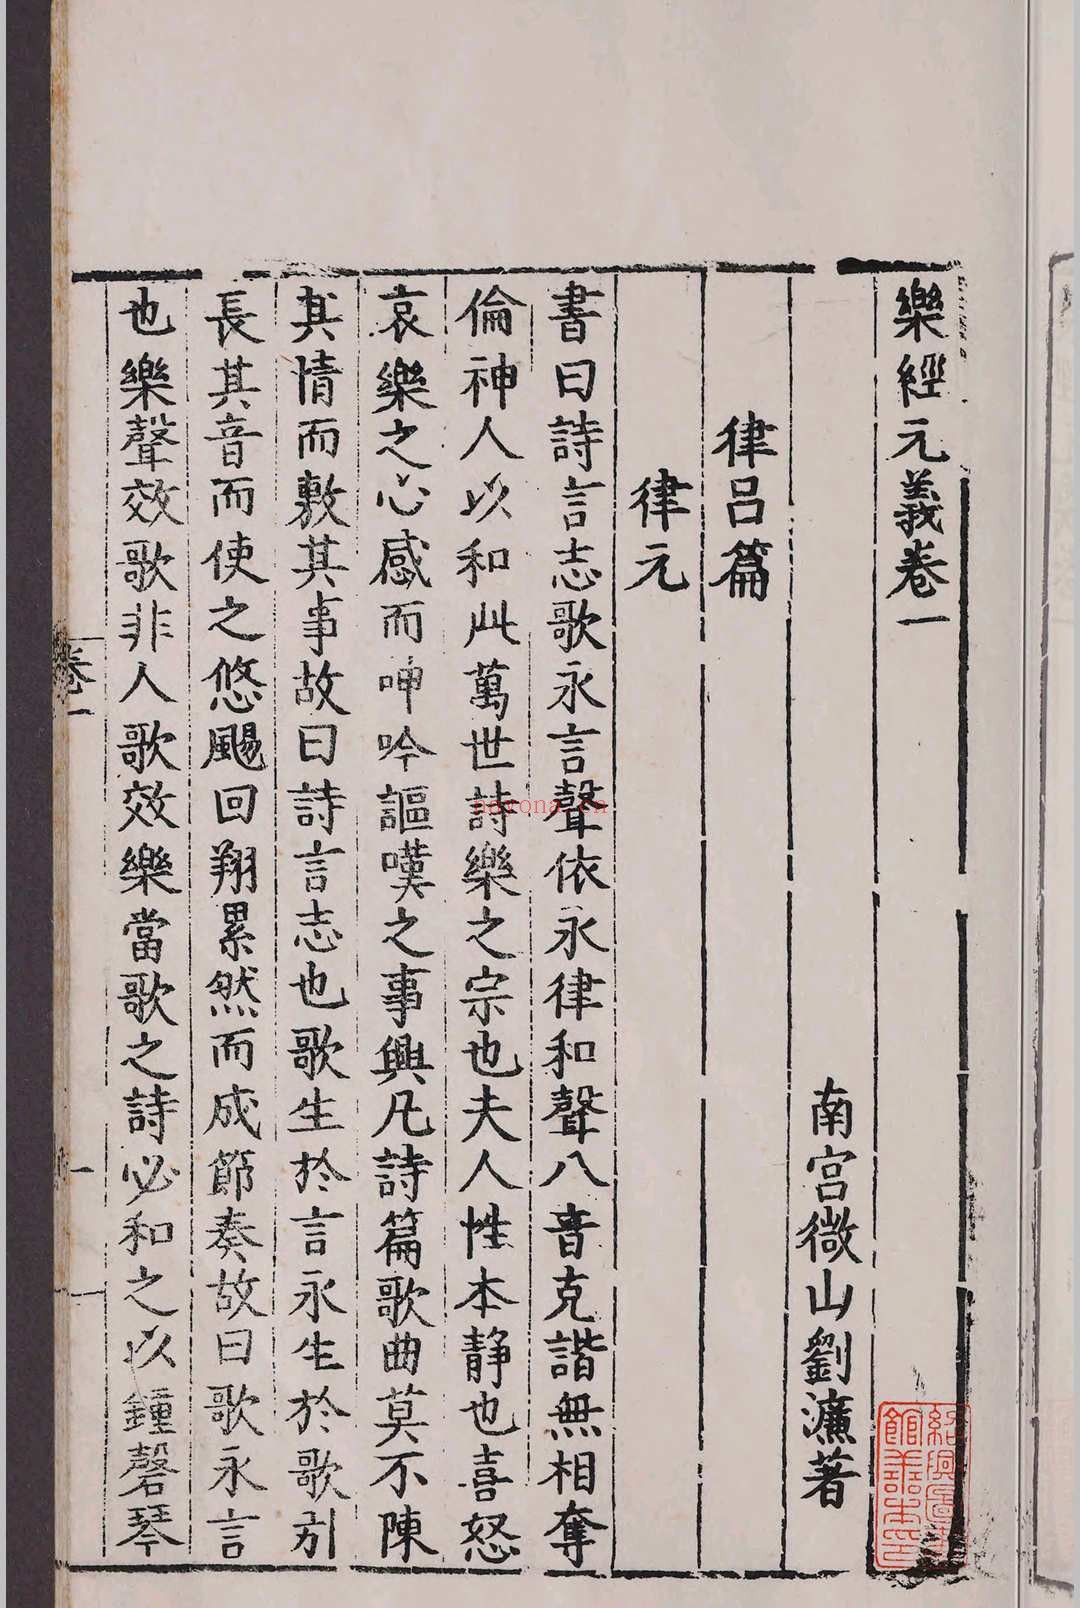 樂經元義卷一
南宮微山劉濂著
律呂篇
律元
書曰詩言志歌永言聲依永律和聲八音克諧無相奪
倫神人以和此萬世詩樂之宗也夫人性本静也喜怒
哀樂之心感而呻吟謳嘆之事興凡詩篇歌曲莫不陳
其情而敷其事故曰詩言志也歌生於言永生於歌引
長其音而使之悠颺回翔累然而成節奏故曰歌永言
也樂聲效歌非人歌效樂當歌之詩必和之以鍾磬琴
卷一
一